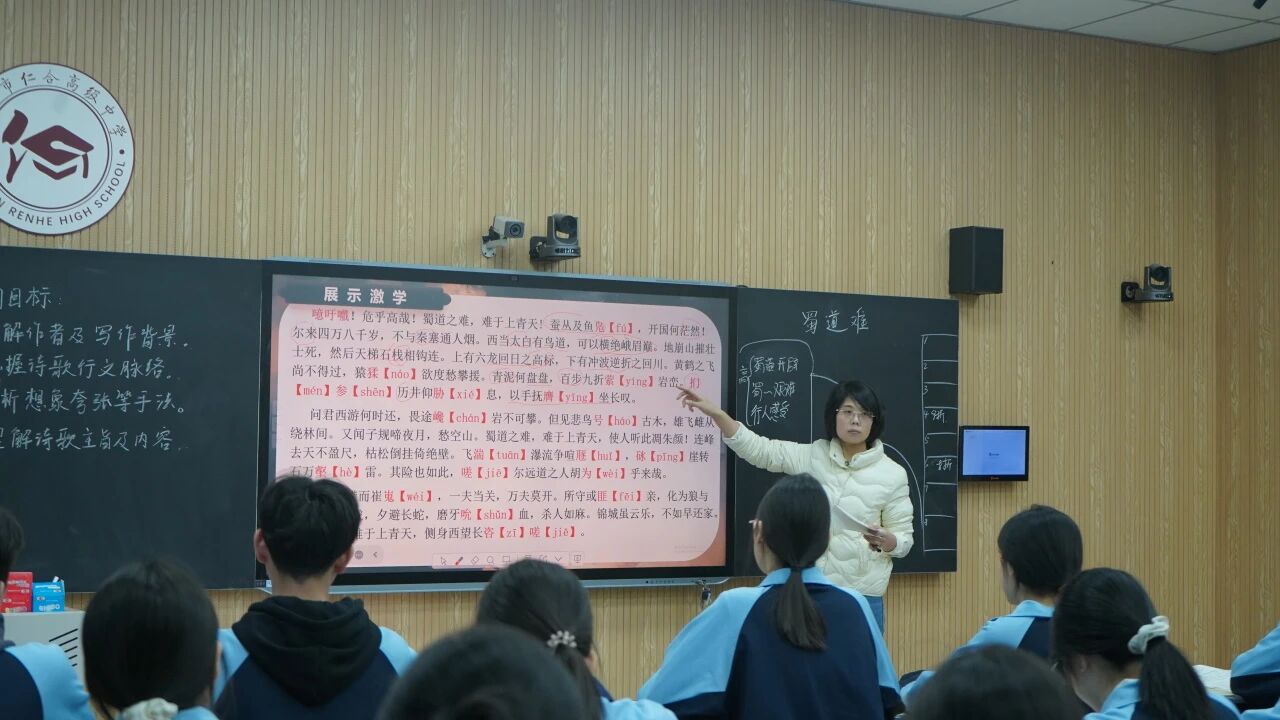 市仁合高级中学
RENHE HIGH SCHOOL
目标:
解作者及写作背景.
握诗歌行文脉络.
析想象夸张等手法.
解诗歌主旨及内容.
展示激学
噫吁嚱！危乎高哉！蜀道之难，难于上青天！蚕丛及鱼凫【fú】，开国何茫然！
尔来四万八千岁，不与秦塞通人烟。西当太白有鸟道，可以横绝峨眉巅。地崩山摧壮
士死，然后天梯石栈相钩连。上有六龙回日之高标，下有冲波逆折之回川。黄鹤之飞
尚不得过，猿猱【náo】欲度愁攀援。青泥何盘盘，百步九折萦【yíng】岩峦。扪
【mén】参【shēn】历井仰胁【xié】息，以手抚膺【yīng】坐长叹。
问君西游何时还，畏途巉【chán】岩不可攀。但见悲鸟号【háo】古木，雄飞雌从
绕林间。又闻子规啼夜月，愁空山。蜀道之难，难于上青天，使人听此凋朱颜！连峰
去天不盈尺，枯松倒挂倚绝壁。飞湍【tuān】瀑流争喧豗【huī】，砯【pīng】崖转
石万壑【hè】雷。其险也如此，嗟【jiē】尔远道之人胡为【wèi】乎来哉。
而崔嵬【wéi】，一夫当关，万夫莫开。所守或匪【fěi】亲，化为狼与
，夕避长蛇，磨牙吮【shǔn】血，杀人如麻。锦城虽云乐，不如早还家。
难于上青天，侧身西望长咨【zī】嗟【jiē】。
蜀道难
高
蜀道开辟
蜀一艰难
行人感受
1
2
3
4
5
6
7
8